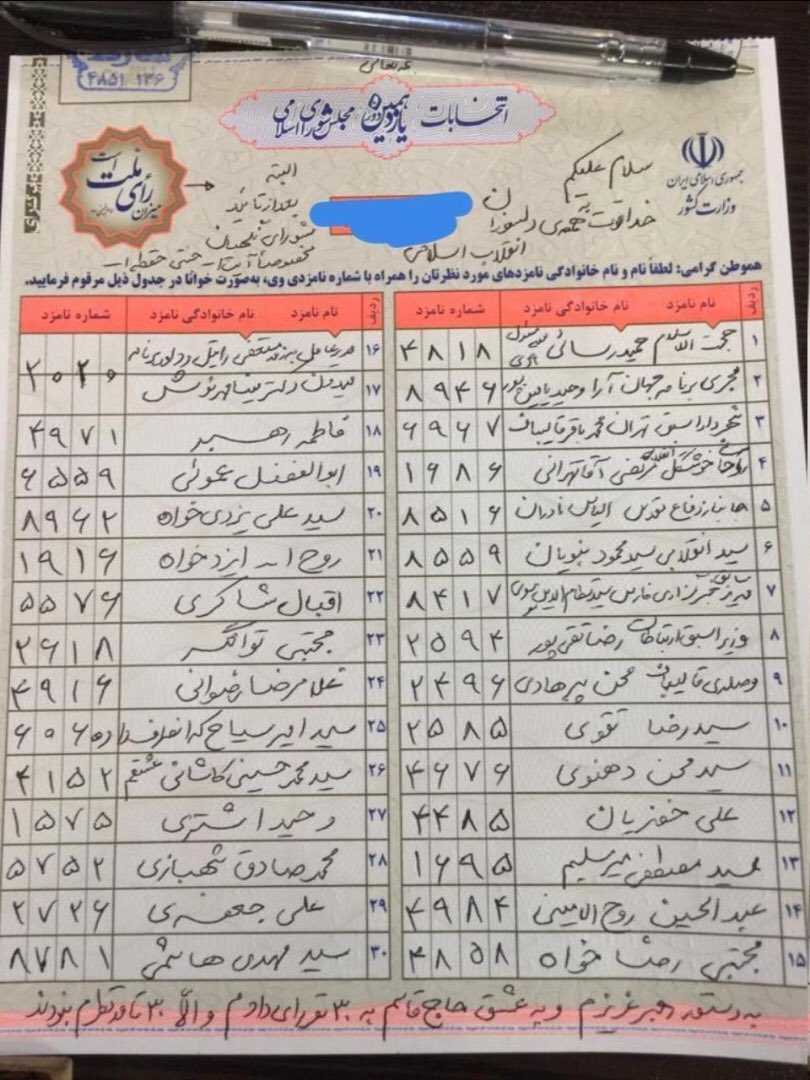 ۴۸۵۱ ۱۳۶
انتخابات یازدهمین دوره مجلس شورای اسلامی
جمهوری اسلامی ایران
وزارت کشور
میزان رأی ملت است
سلام علیکم
خداقوت به همه‌ی دلسوزان
انقلاب اسلامی
البته
بعد از تائید
شورای نگهبان
مخصوصاً آیت ا... جنتی حفظه ا...
هموطن گرامی: لطفاً نام و نام خانوادگی نامزدهای مورد نظرتان را همراه با شماره نامزدی وی، به‌صورت خوانا در جدول ذیل مرقوم فرمایید.
ردیف نام نامزد نام خانوادگی نامزد شماره نامزد
۱ حجت الاسلام حمید رسائی ۴۸۱۸
۲ مجری برنامه جهان آرا وحید یامین پور ۸۹۴۶
۳ شهردار اسبق تهران محمد باقر قالیباف ۶۹۶۷
۴ مرتضی آقاتهرانی ۱۶۸۶
۵ جانباز دفاع مقدس الیاس نادران ۸۵۱۶
۶ سید انقلابی سید محمود نبویان ۸۵۵۹
۷ سید نظام الدین موسوی ۸۴۱۷
۸ وزیر اسبق ارتباطات رضا تقی پور ۲۵۹۴
۹ محسن پیرهادی ۲۴۹۶
۱۰ سید رضا تقوی ۲۵۸۵
۱۱ سید محسن دهنوی ۴۶۷۶
۱۲ علی خضریان ۴۴۸۵
۱۳ سید مصطفی میرسلیم ۱۶۹۵
۱۴ عبدالحسین روح الامینی ۴۹۸۴
۱۵ مجتبی رضا خواه ۴۸۵۸
ردیف نام نامزد نام خانوادگی نامزد شماره نامزد
۱۶ مدیر عامل ۲۰۲۰
۱۷ فریدون
۱۸ فاطمه رهبر ۴۹۷۱
۱۹ ابوالفضل عموئی ۶۵۵۹
۲۰ سید علی یزدی خواه ۸۹۶۲
۲۱ روح ا... ایزدخواه ۱۹۱۶
۲۲ اقبال شاکری ۵۵۷۶
۲۳ مجتبی توانگر ۲۶۱۸
۲۴ غلامرضا رضوانی ۴۹۱۶
۲۵ سید امیر سیاح ۶۰۶۵
۲۶ سید محمد حسینی کاشانی ۴۱۵۲
۲۷ وحید اشتری ۱۵۷۵
۲۸ محمد صادق شهبازی ۵۷۵۲
۲۹ علی جعفری ۲۷۲۶
۳۰ سید مهدی هاشمی ۸۷۸۱
به دستور رهبر عزیزم و به عشق حاج قاسم به ۳۰ نفر رای دادم و الّا ۳۰ تا قد نظرم نبودند